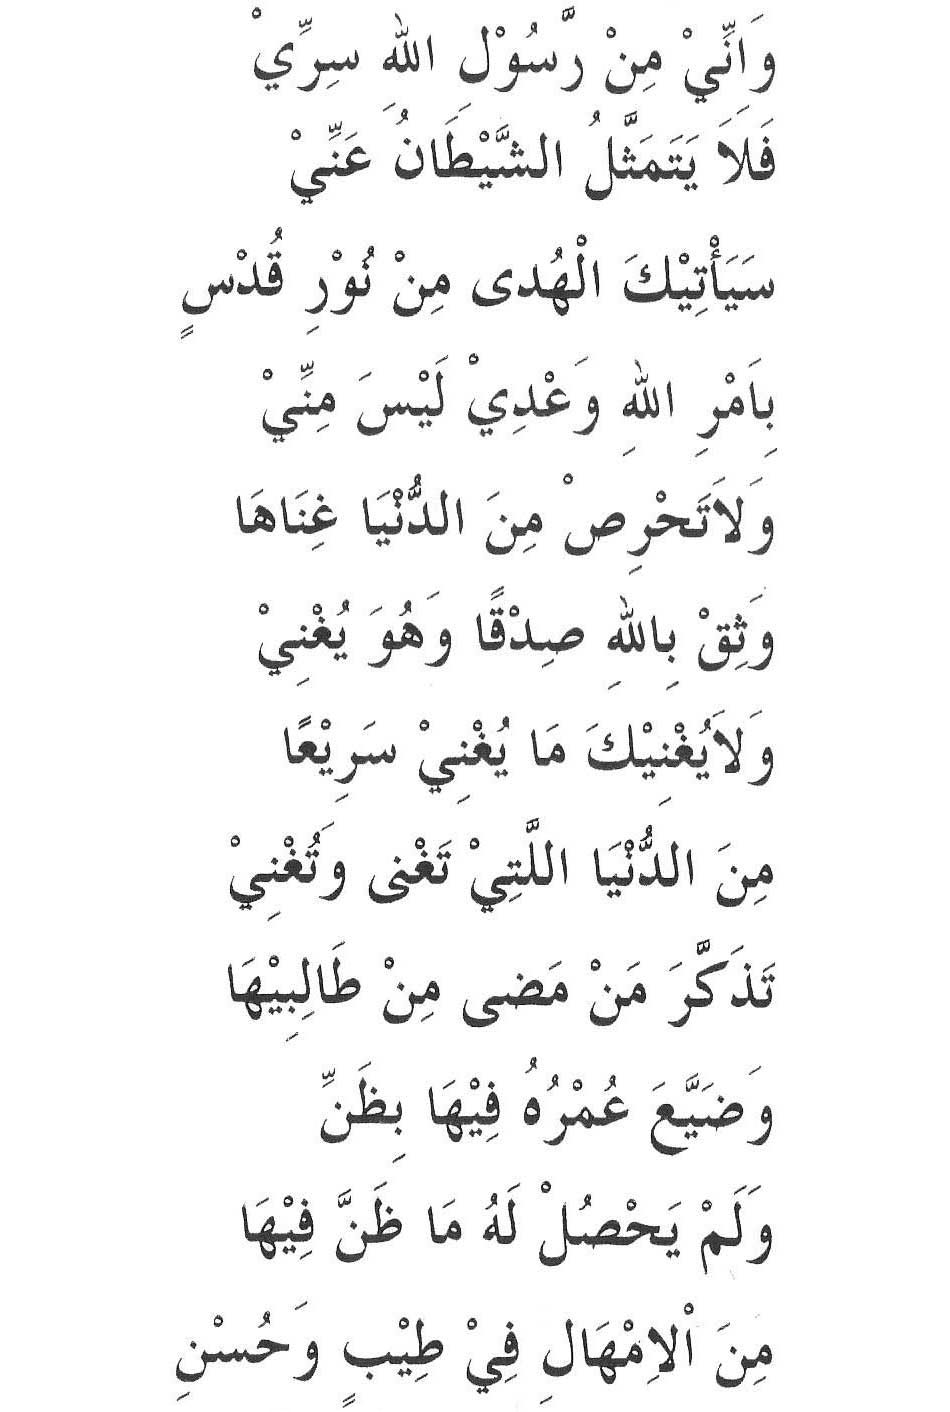 وَاِنِّيْ مِنْ رَّسُوْلِ اللهِ سِرِّيْ
فَلَا يَتَمَثَّلُ الشَّيْطَانُ عَنِّيْ
سَيَأْتِيْكَ الْهُدى مِنْ نُوْرِ قُدْسٍ
بِاَمْرِ اللهِ وَعْدِيْ لَيْسَ مِنِّيْ
وَلَاتَحْرِصْ مِنَ الدُّنْيَا غِنَاهَا
وَثِقْ بِاللهِ صِدْقًا وَهُوَ يُغْنِيْ
وَلَايُغْنِيْكَ مَا يُغْنِيْ سَرِيْعًا
مِنَ الدُّنْيَا اللَّتِيْ تَغْنى وَتُغْنِيْ
تَذَكَّرَ مَنْ مَضى مِنْ طَالِبِيْهَا
وَضَيَّعَ عُمْرُهُ فِيْهَا بِظَنِّ
وَلَمْ يَحْصُلْ لَهُ مَا ظَنَّ فِيْهَا
مِنَ اْلاِمْهَالِ فِيْ طِيْبٍ وَحُسْنِ